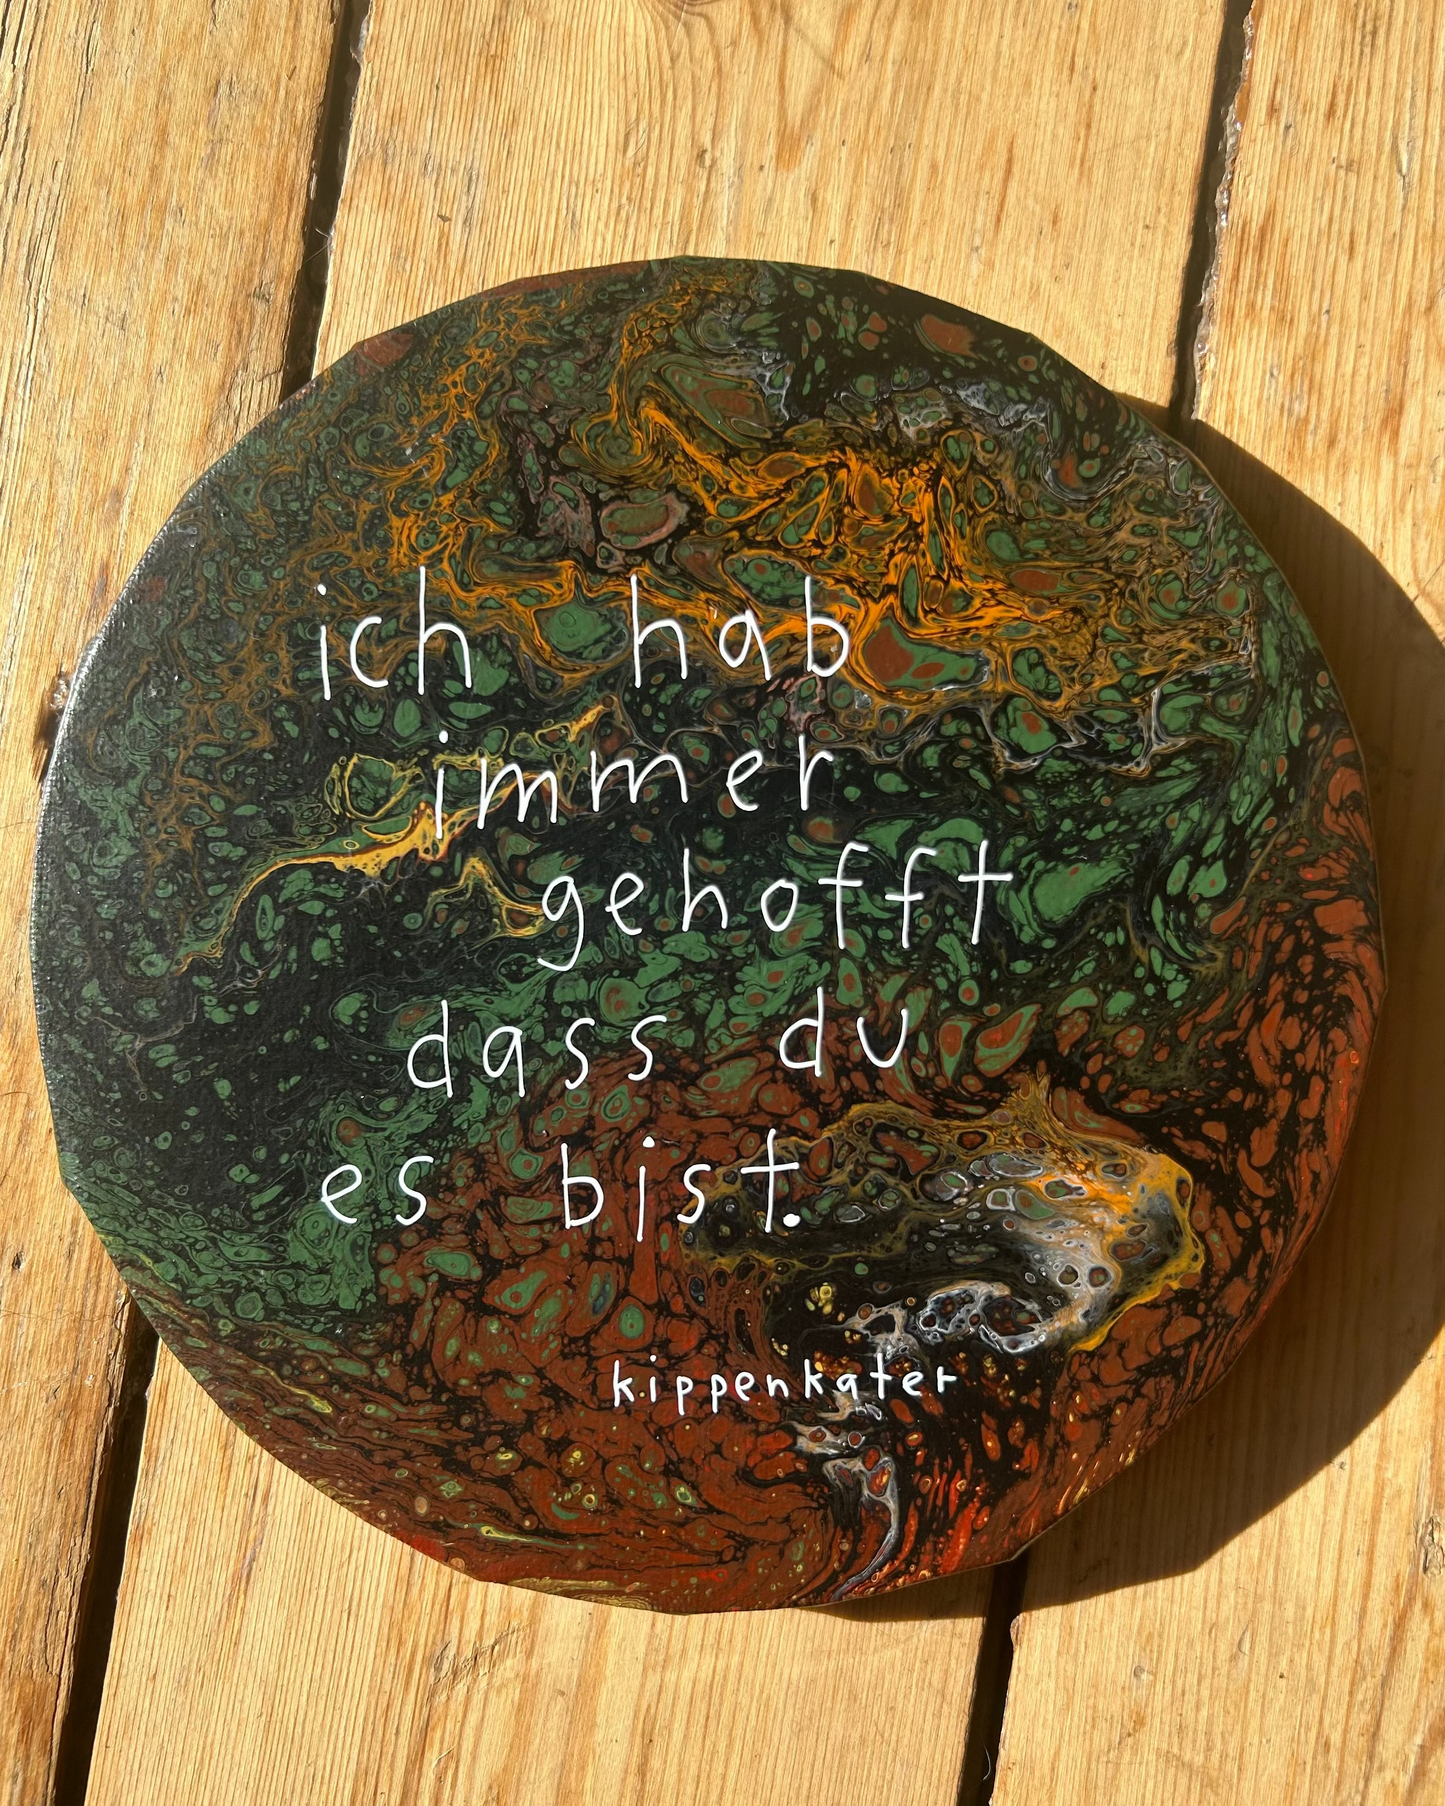 ich hab
immer
gehofft
dass du
es bist.
kippenkater